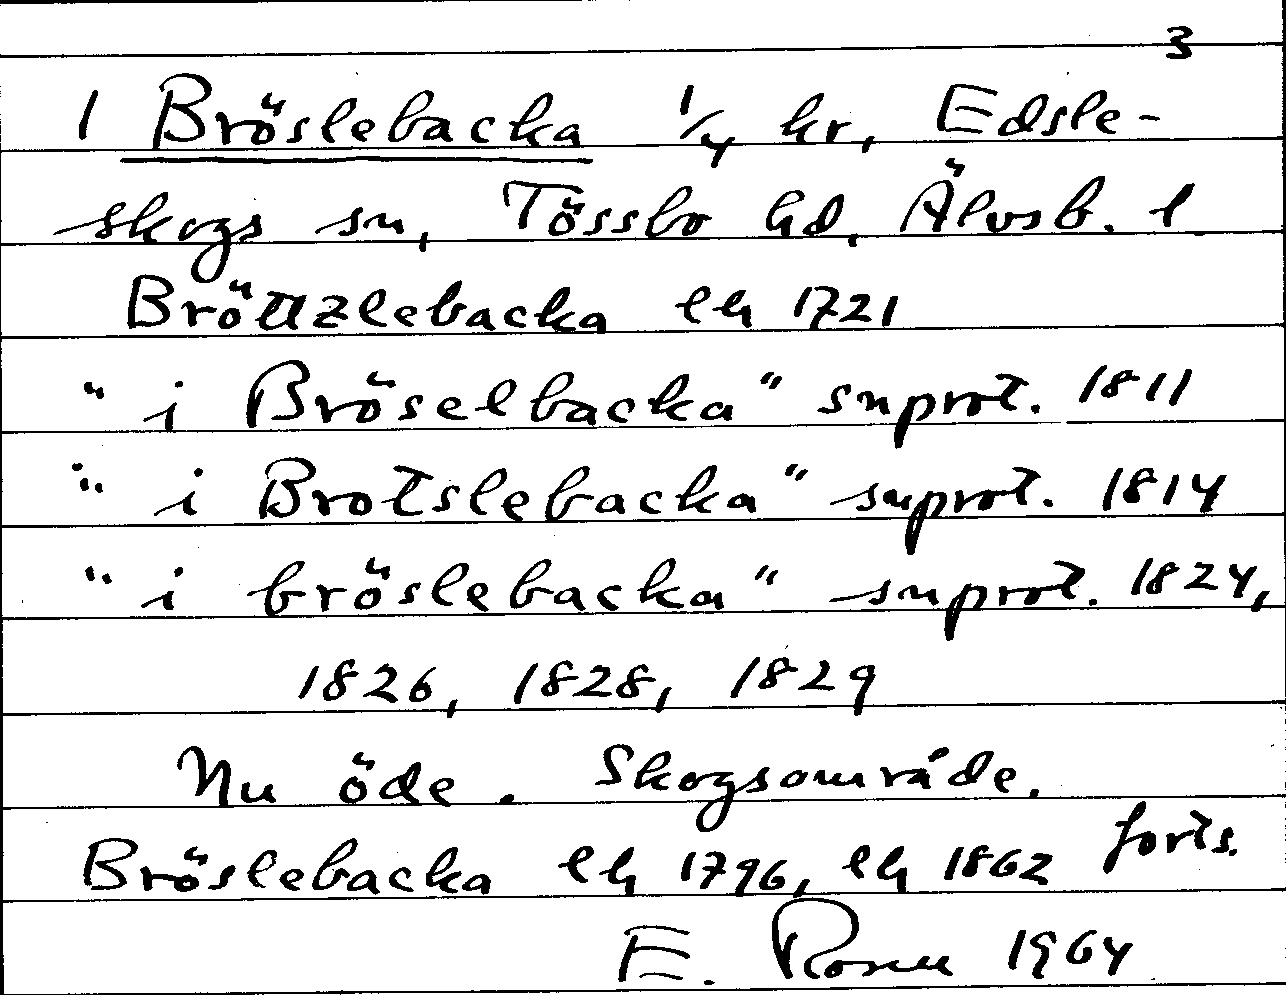 3
1 Bröslebacka 1/4 kr, Edsle-
skogs sn, Tössbo hd, Älvsb. l
Bröttzlebacka lh 1721
"i Bröselbacka" snprot. 1811
"i Brotslebacka" snprot. 1814
"i bröslebacka" snprot. 1824,
1826, 1828, 1829
Nu öde. Skogsområde.
Bröslebacka lh 1796, lh 1862 forts.
E. Rosell 1964